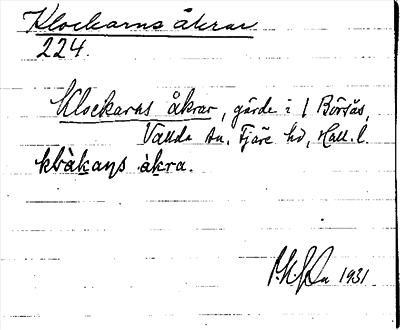 Klockarns åkrar
224.
Klockarns åkrar, gärde i 1 Börsås,
Vallda sn, Fjäre hd, Hall. l.
klȯ̀kans àkra.
1931